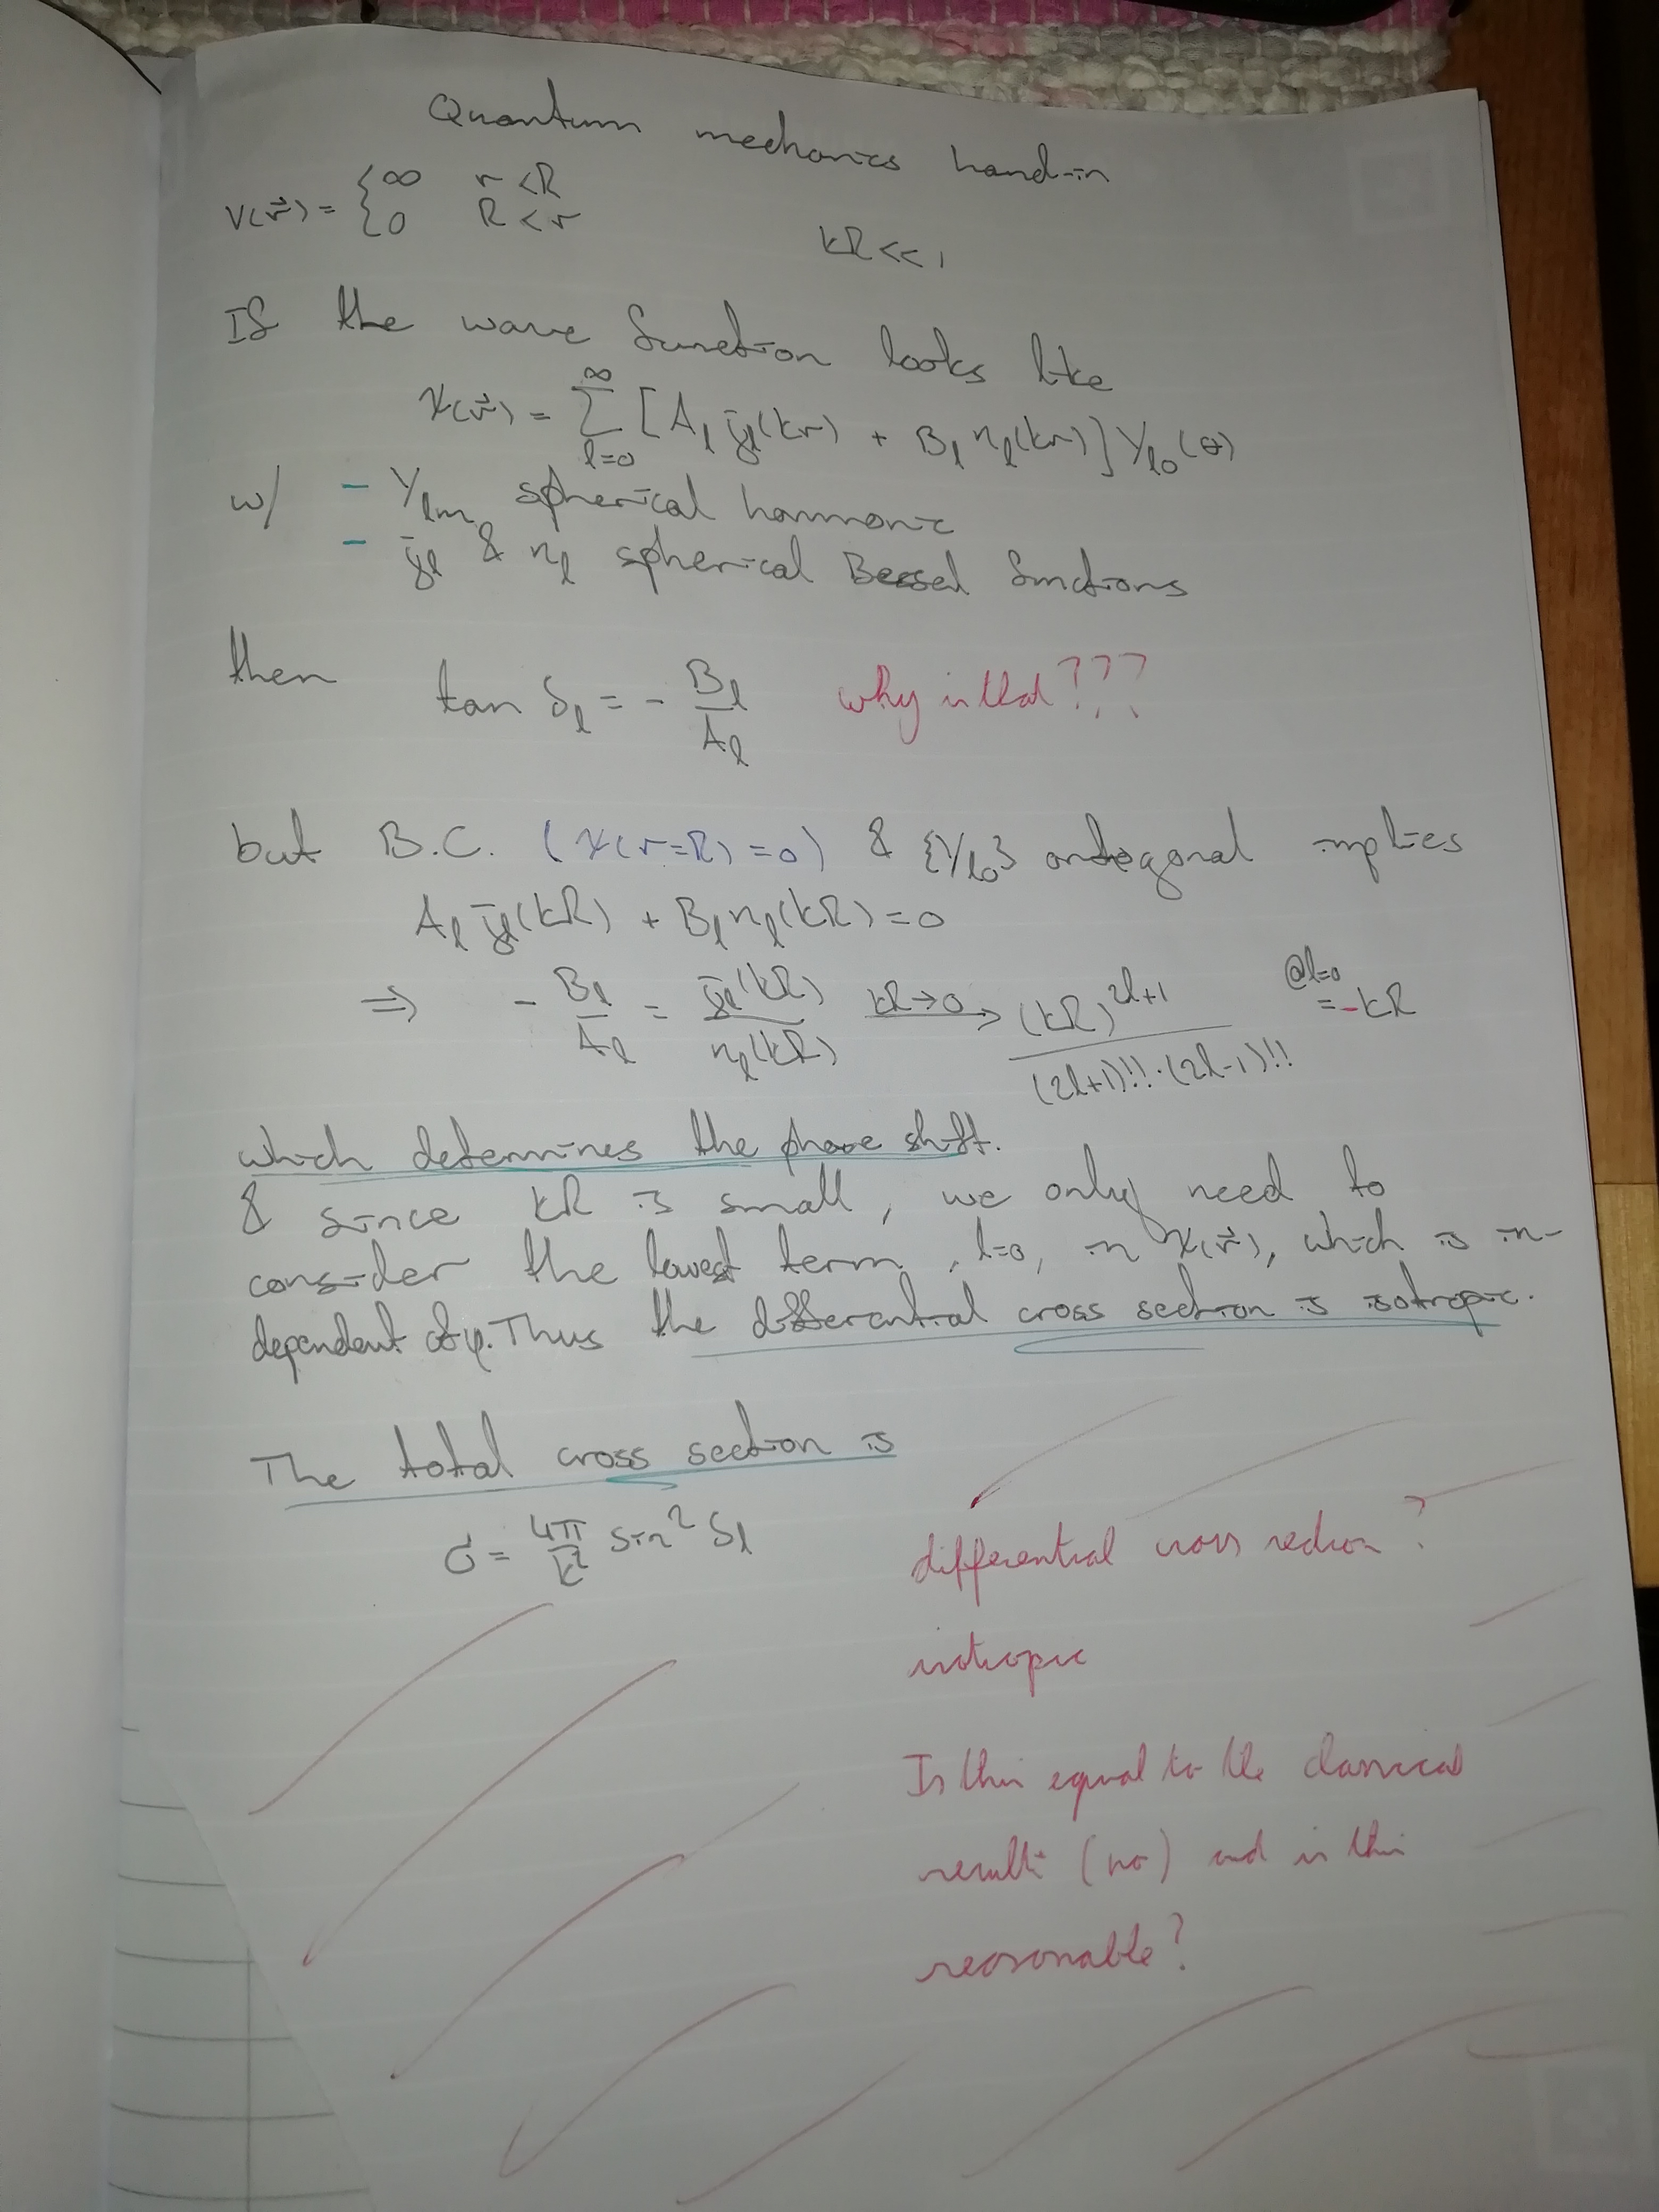 Quantum mechanics hand-in
V(r⃗) = { ∞ r < R
0 R < r
kR << 1
If the wave function looks like
ψ(r⃗) = ∑_{l=0}^{∞} [A_l j_l(kr) + B_l n_l(kr)] Y_{l0}(θ)
w/ - Y_{lm} spherical harmonic
- j_l & n_l spherical Bessel functions
then tan δ_l = - B_l / A_l why is that ???
but B.C. (ψ(r=R) = 0) & {Y_{l0}} ortogonal implies
A_l j_l(kR) + B_l n_l(kR) = 0
⇒ - B_l / A_l = j_l(kR) / n_l(kR) kR→0 → (kR)^{2l+1} / (2l+1)!!·(2l-1)!! @l=0 = -kR
which determines the phase shift.
& since kR is small, we only need to
consider the lowest term, l=0, in ψ(r⃗), which is in-
dependent of φ. Thus the differential cross section is isotropic.
The total cross section is
σ = 4π/k² sin² δ_l
differential cross section ?
isotropic
Is this equal to the classical
result (no) and is this
reasonable?